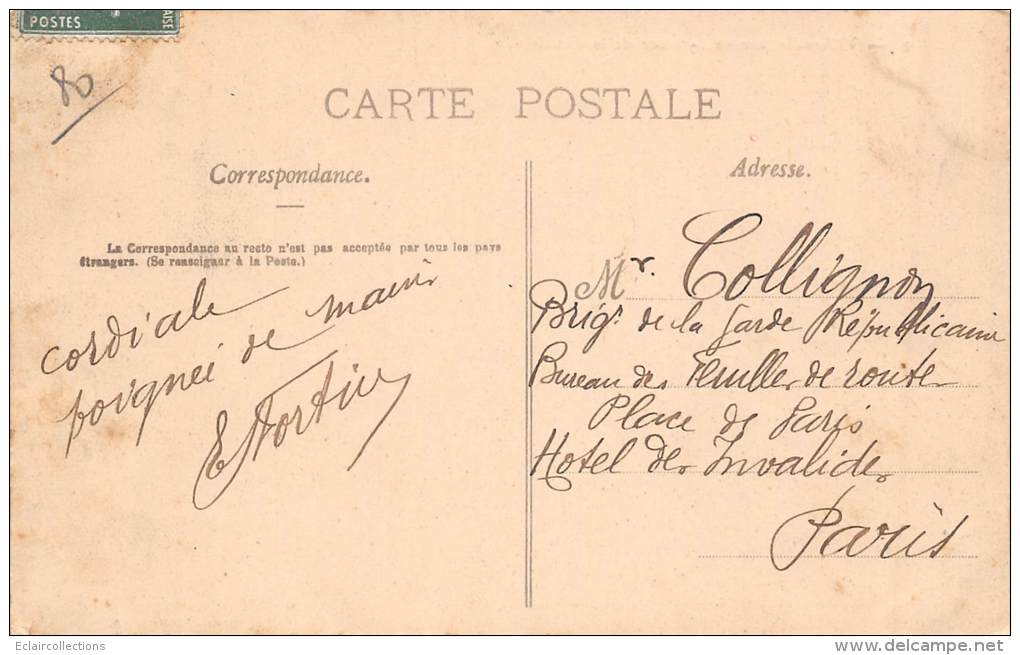 POSTES
AISE
80
CARTE POSTALE
Correspondance.
Adresse.
La Correspondance au recto n'est pas acceptée par tous les pays
étrangers. (Se renseigner à la Poste.)
cordiale
poignée de main
E Fortin
Mr. Collignon
Brigr de la Garde Républicaine
Bureau des Feuilles de route
Place de Paris
Hotel des Invalides
Paris
Eclaircollections
www.delcampe.net